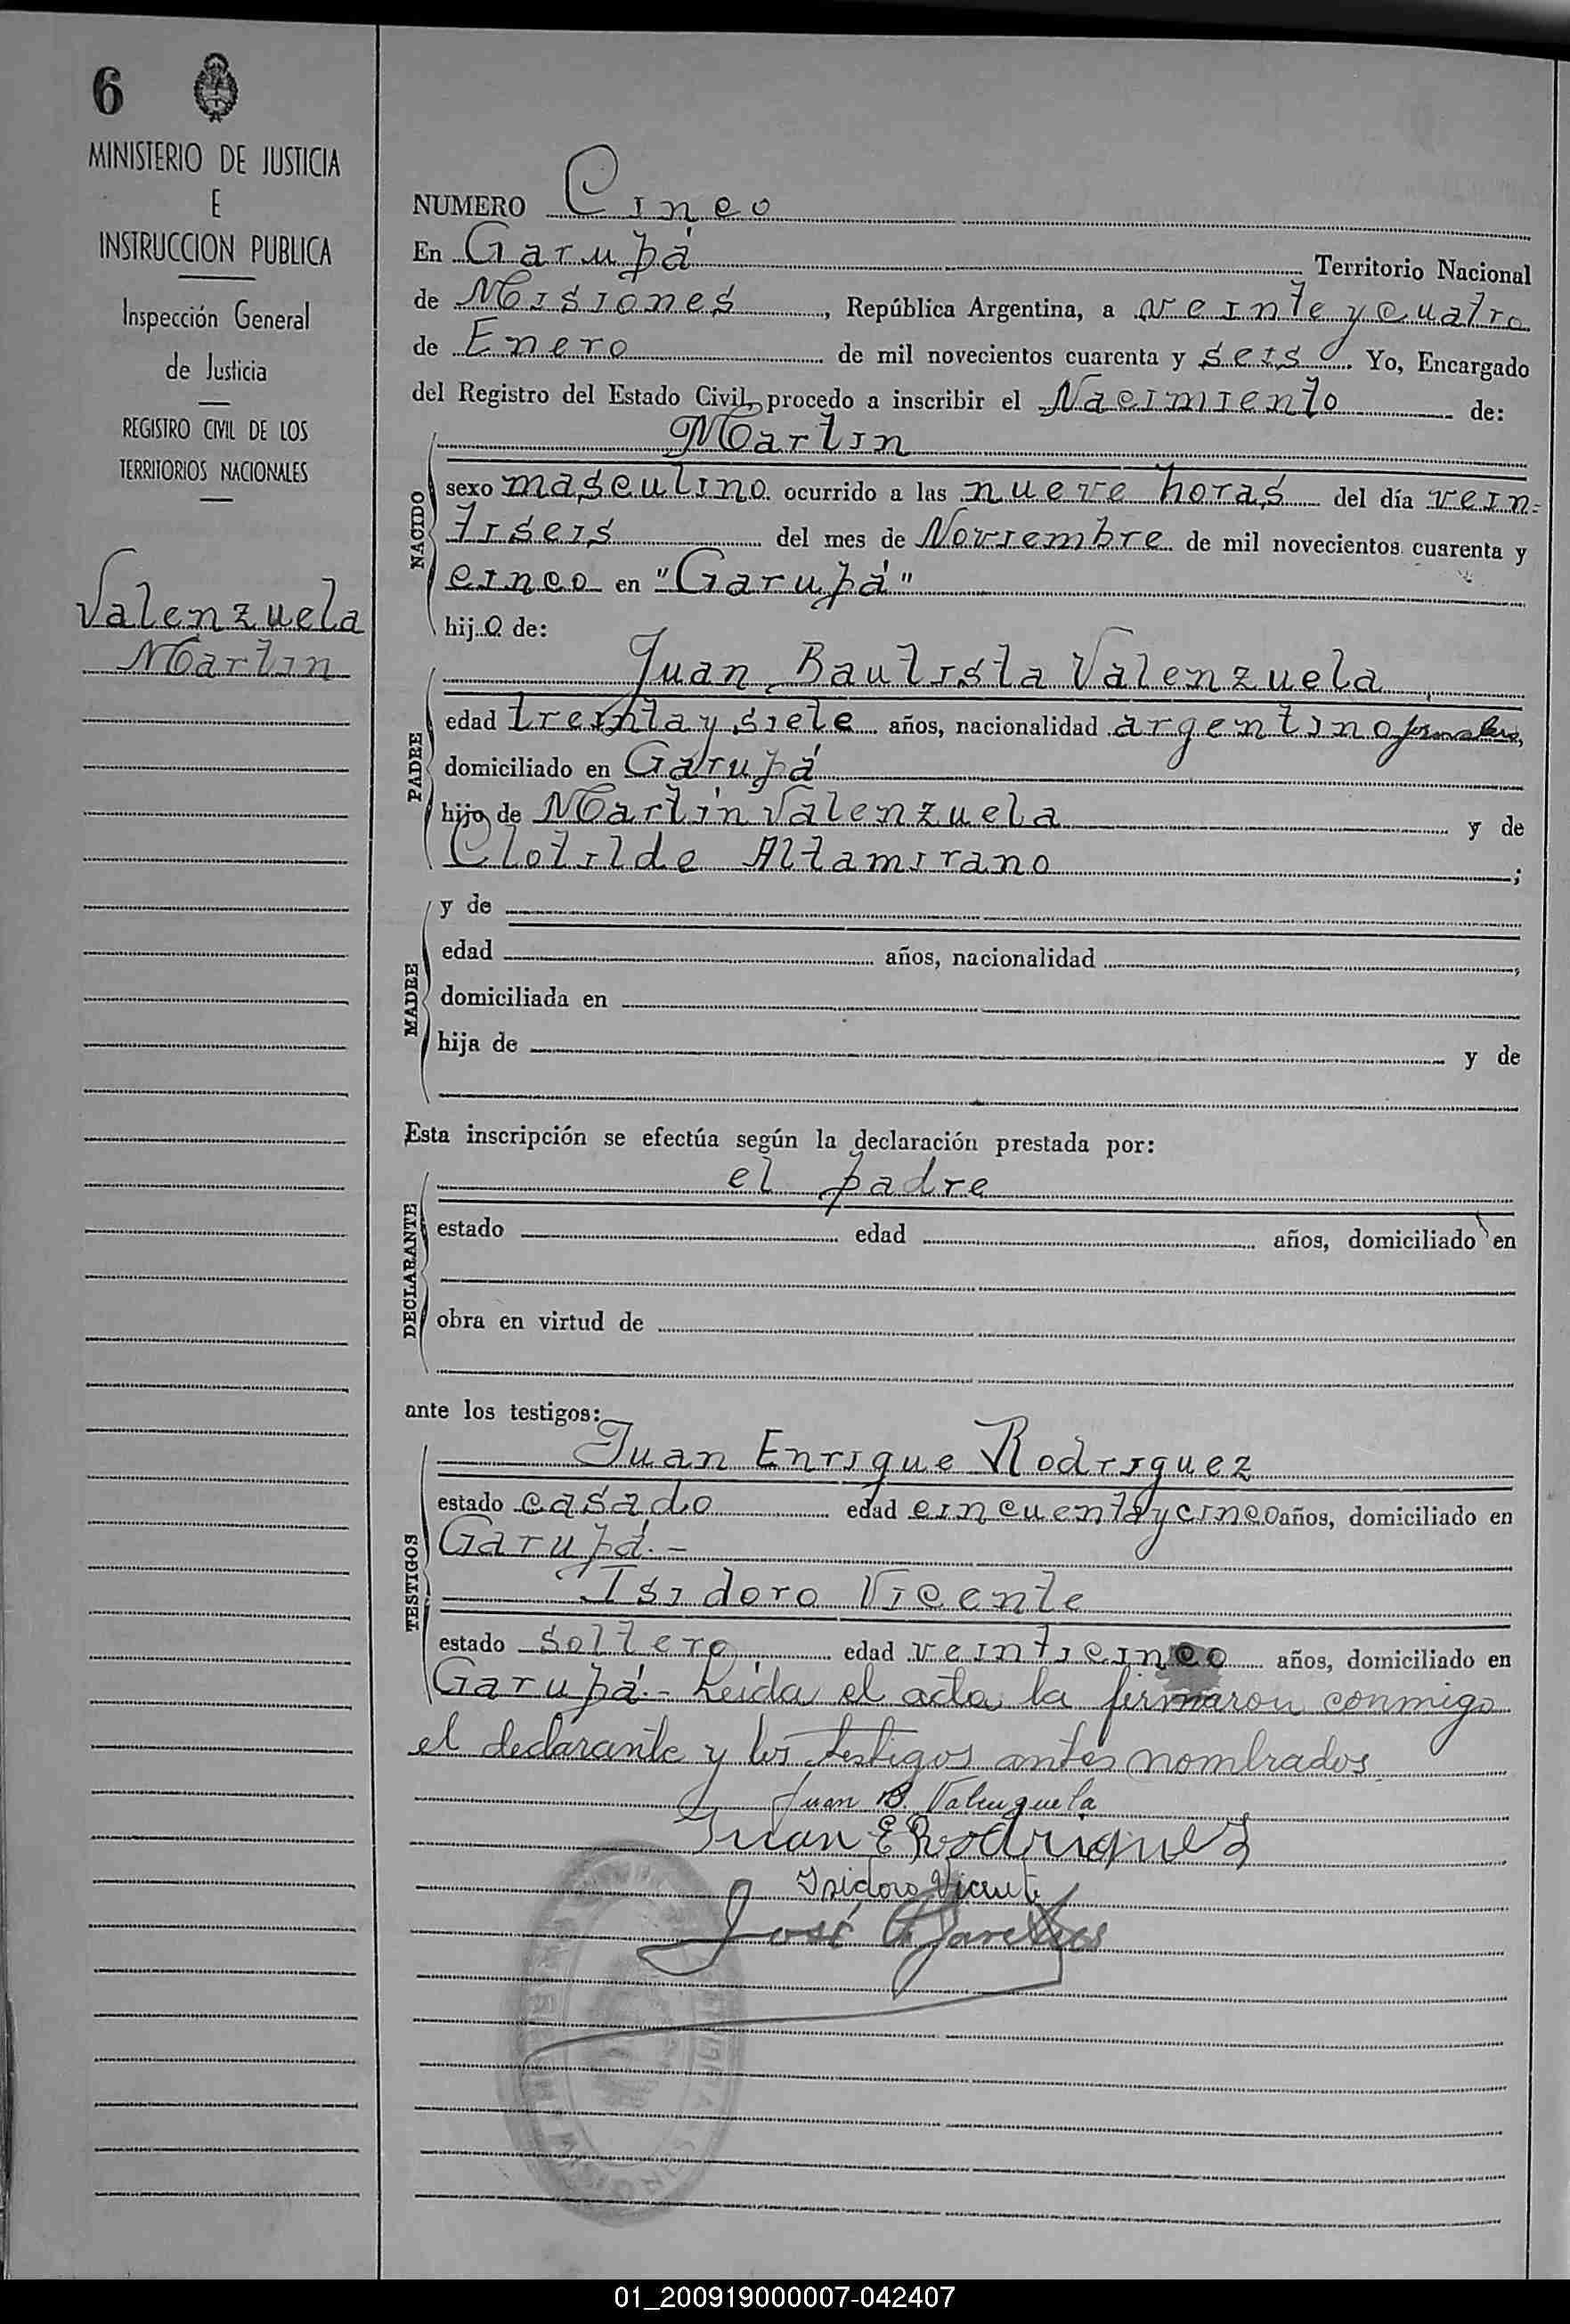 6
MINISTERIO DE JUSTICIA
E
INSTRUCCION PUBLICA
Inspección General
de Justicia
REGISTRO CIVIL DE LOS
TERRITORIOS NACIONALES
Valenzuela
Martin
NUMERO Cinco
En Garupá Territorio Nacional
de Misiones, República Argentina, a veinte y cuatro
de Enero de mil novecientos cuarenta y seis. Yo, Encargado
del Registro del Estado Civil, procedo a inscribir el Nacimiento de:
NACIDO
Martin
sexo masculino ocurrido a las nueve horas del día vein=
tiseis del mes de Noviembre de mil novecientos cuarenta y
cinco en "Garupá"
hijo de:
PADRE
Juan Bautista Valenzuela
edad treinta y siete años, nacionalidad argentino jornalero,
domiciliado en Garupá
hijo de Martín Valenzuela y de
Clotilde Altamirano;
MADRE
y de
edad años, nacionalidad,
domiciliada en
hija de y de
Esta inscripción se efectúa según la declaración prestada por:
DECLARANTE
el padre
estado edad años, domiciliado en
obra en virtud de
ante los testigos:
TESTIGOS
Juan Enrique Rodriguez
estado casado edad cincuenta y cinco años, domiciliado en
Garupá.-
Isidoro Vicente
estado soltero edad veinticinco años, domiciliado en
Garupá.- Leida el acta la firmaron conmigo
el declarante y los testigos antes nombrados
Juan B. Valenzuela
Juan E Rodriguez
Isidoro Vicente
José
01_200919000007-042407